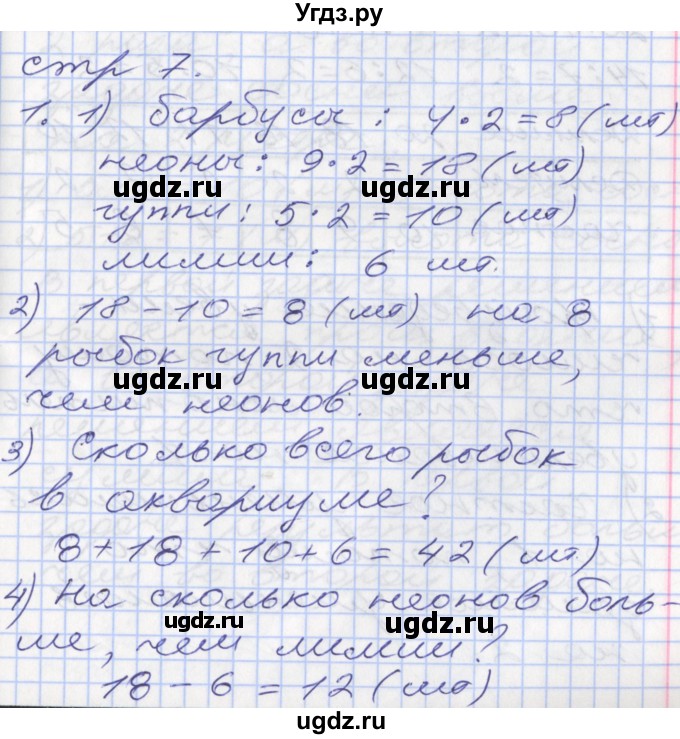 Угдз.ру
стр 7.
1. 1) барбусы: 4·2=8 (шт)
неоны: 9·2=18 (шт)
ugdz.ru ugdz.ru
гуппи: 5·2=10 (шт)
лилии: 6 шт.
2) 18-10=8 (шт) на 8
рыбок гуппи меньше,
ugdz.ru ugdz.ru
чем неонов.
3) Сколько всего рыбок
в аквариуме?
8+18+10+6=42 (шт)
4) На сколько неонов боль-
ugdz.ru ugdz.ru
ше, чем лилии?
18-6=12 (шт)
ugdz.ru